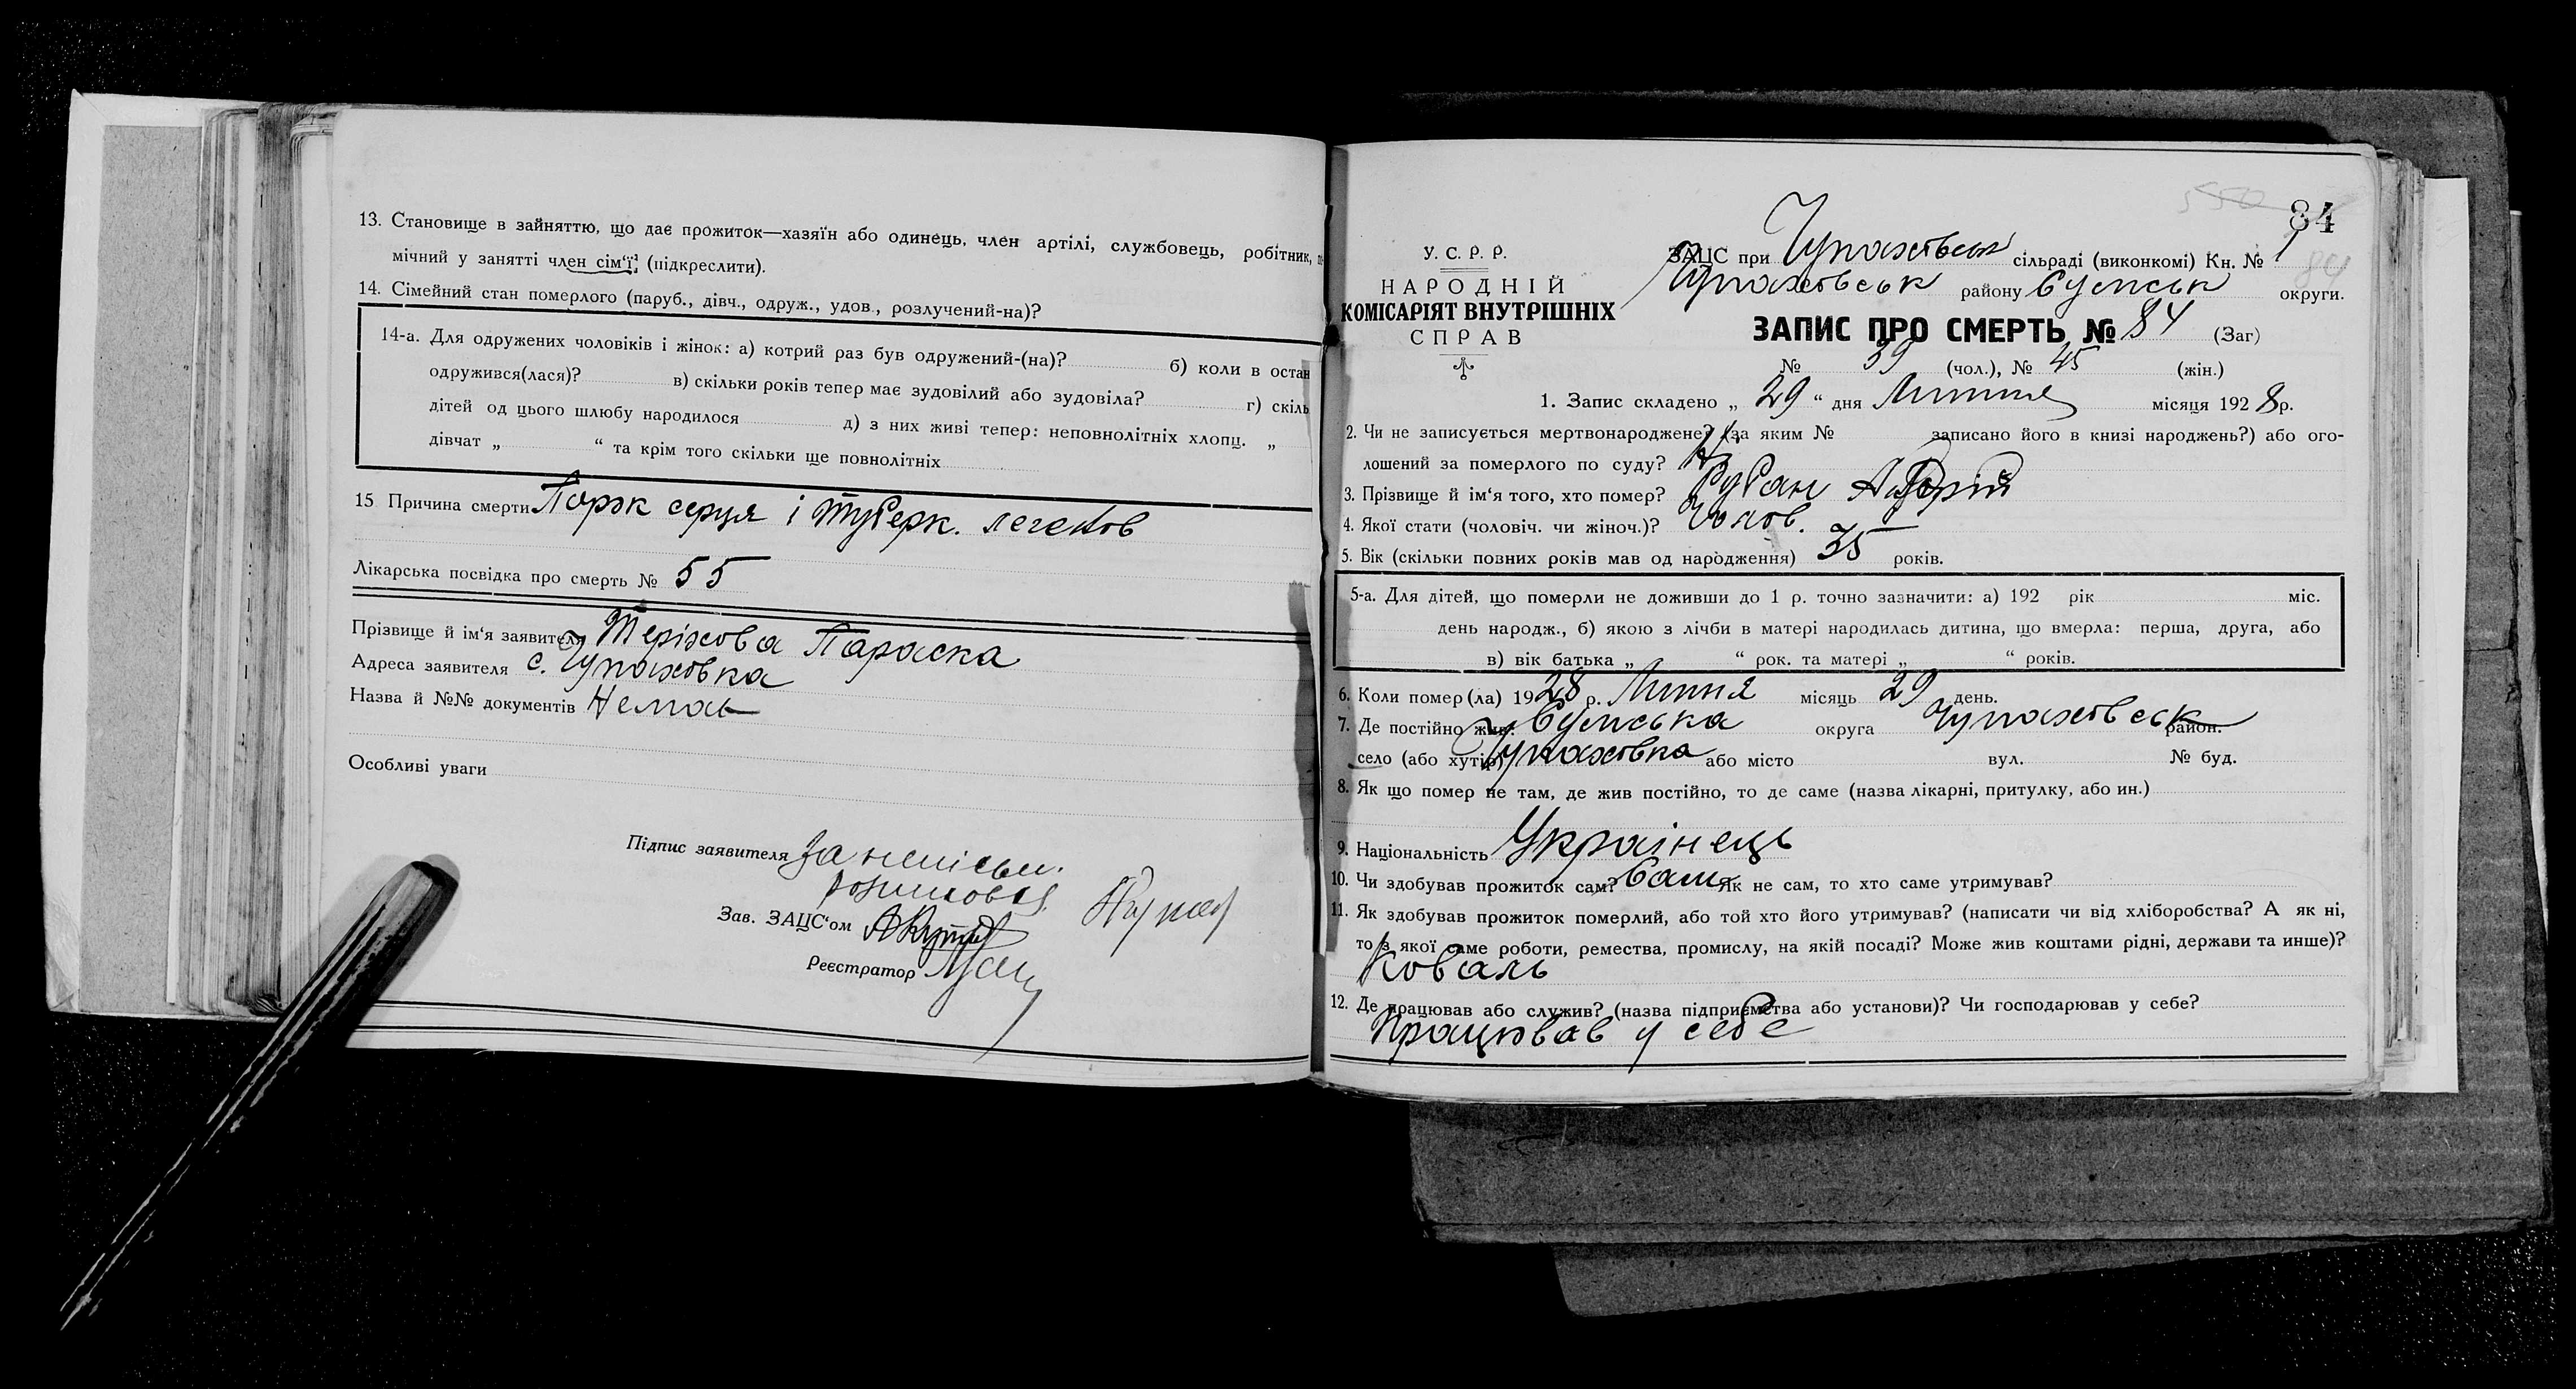 13. Становище в зайняттю, що дає прожиток—хазяїн або одинець, член артілі, службовець, робітник,
мічний у занятті член сім‘ї, (підкреслити).
14. Сімейний стан померлого (паруб., дівч., одруж., удов., розлучений-на)?
14-а. Для одружених чоловіків і жінок: а) котрий раз був одружений-(на)? б) коли в остан
одружився(лася)? в) скільки років тепер має зудовілий або зудовіла? г) скіль
дітей од цього шлюбу народилося д) з них живі тепер: неповнолітніх хлопц. „
дівчат „ “ та крім того скільки ще повнолітніх
15 Причина смерти Порок серця і туберк. легенів
Лікарська посвідка про смерть № 55
Прізвище й ім‘я заявителя Теріхова Параска
Адреса заявителя с. Чупаховка
Назва й №№ документів Немає
Особливі уваги
Підпис заявителя За неписьм.
розписовся
Зав. ЗАЦС‘ом
Реєстратор
84
У. С. Р. Р.
НАРОДНІЙ
КОМІСАРІЯТ ВНУТРІШНІХ
СПРАВ
ЗАЦС при Чупаховськ сільраді (виконкомі) Кн. № 1
Чупаховськ району Сумськ округи.
ЗАПИС ПРО СМЕРТЬ № 84 (Заг)
№ 39 (чол.), № 45 (жін.)
1. Запис складено „ 29 “ дня Липня місяця 1928 р.
2. Чи не записується мертвонароджене? (за яким № записано його в книзі народжень?) або ого-
лошений за померлого по суду? Ні
3. Прізвище й ім‘я того, хто помер? Рубан Андрій
4. Якої стати (чоловіч. чи жіноч.)? Чолов.
5. Вік (скільки повних років мав од народження) 35 років.
5-а. Для дітей, що померли не доживши до 1 р. точно зазначити: а) 192 рік міс.
день народж., б) якою з лічби в матері народилась дитина, що вмерла: перша, друга, або
в) вік батька „ “ рок. та матері „ “ років.
6. Коли помер(ла) 1928 р. Липня місяць 29 день.
7. Де постійно жив: Сумська округа Чупаховськ район.
село (або хутір) Чупаховка або місто вул. № буд.
8. Як що помер не там, де жив постійно, то де саме (назва лікарні, притулку, або ин.)
9. Національність Українець
10. Чи здобував прожиток сам? Сам Як не сам, то хто саме утримував?
11. Як здобував прожиток померлий, або той хто його утримував? (написати чи від хліборобства? А як ні,
то з якої саме роботи, ремества, промислу, на якій посаді? Може жив коштами рідні, держави та инше)?
Коваль
12. Де працював або служив? (назва підприємства або установи)? Чи господарював у себе?
Працював у себе